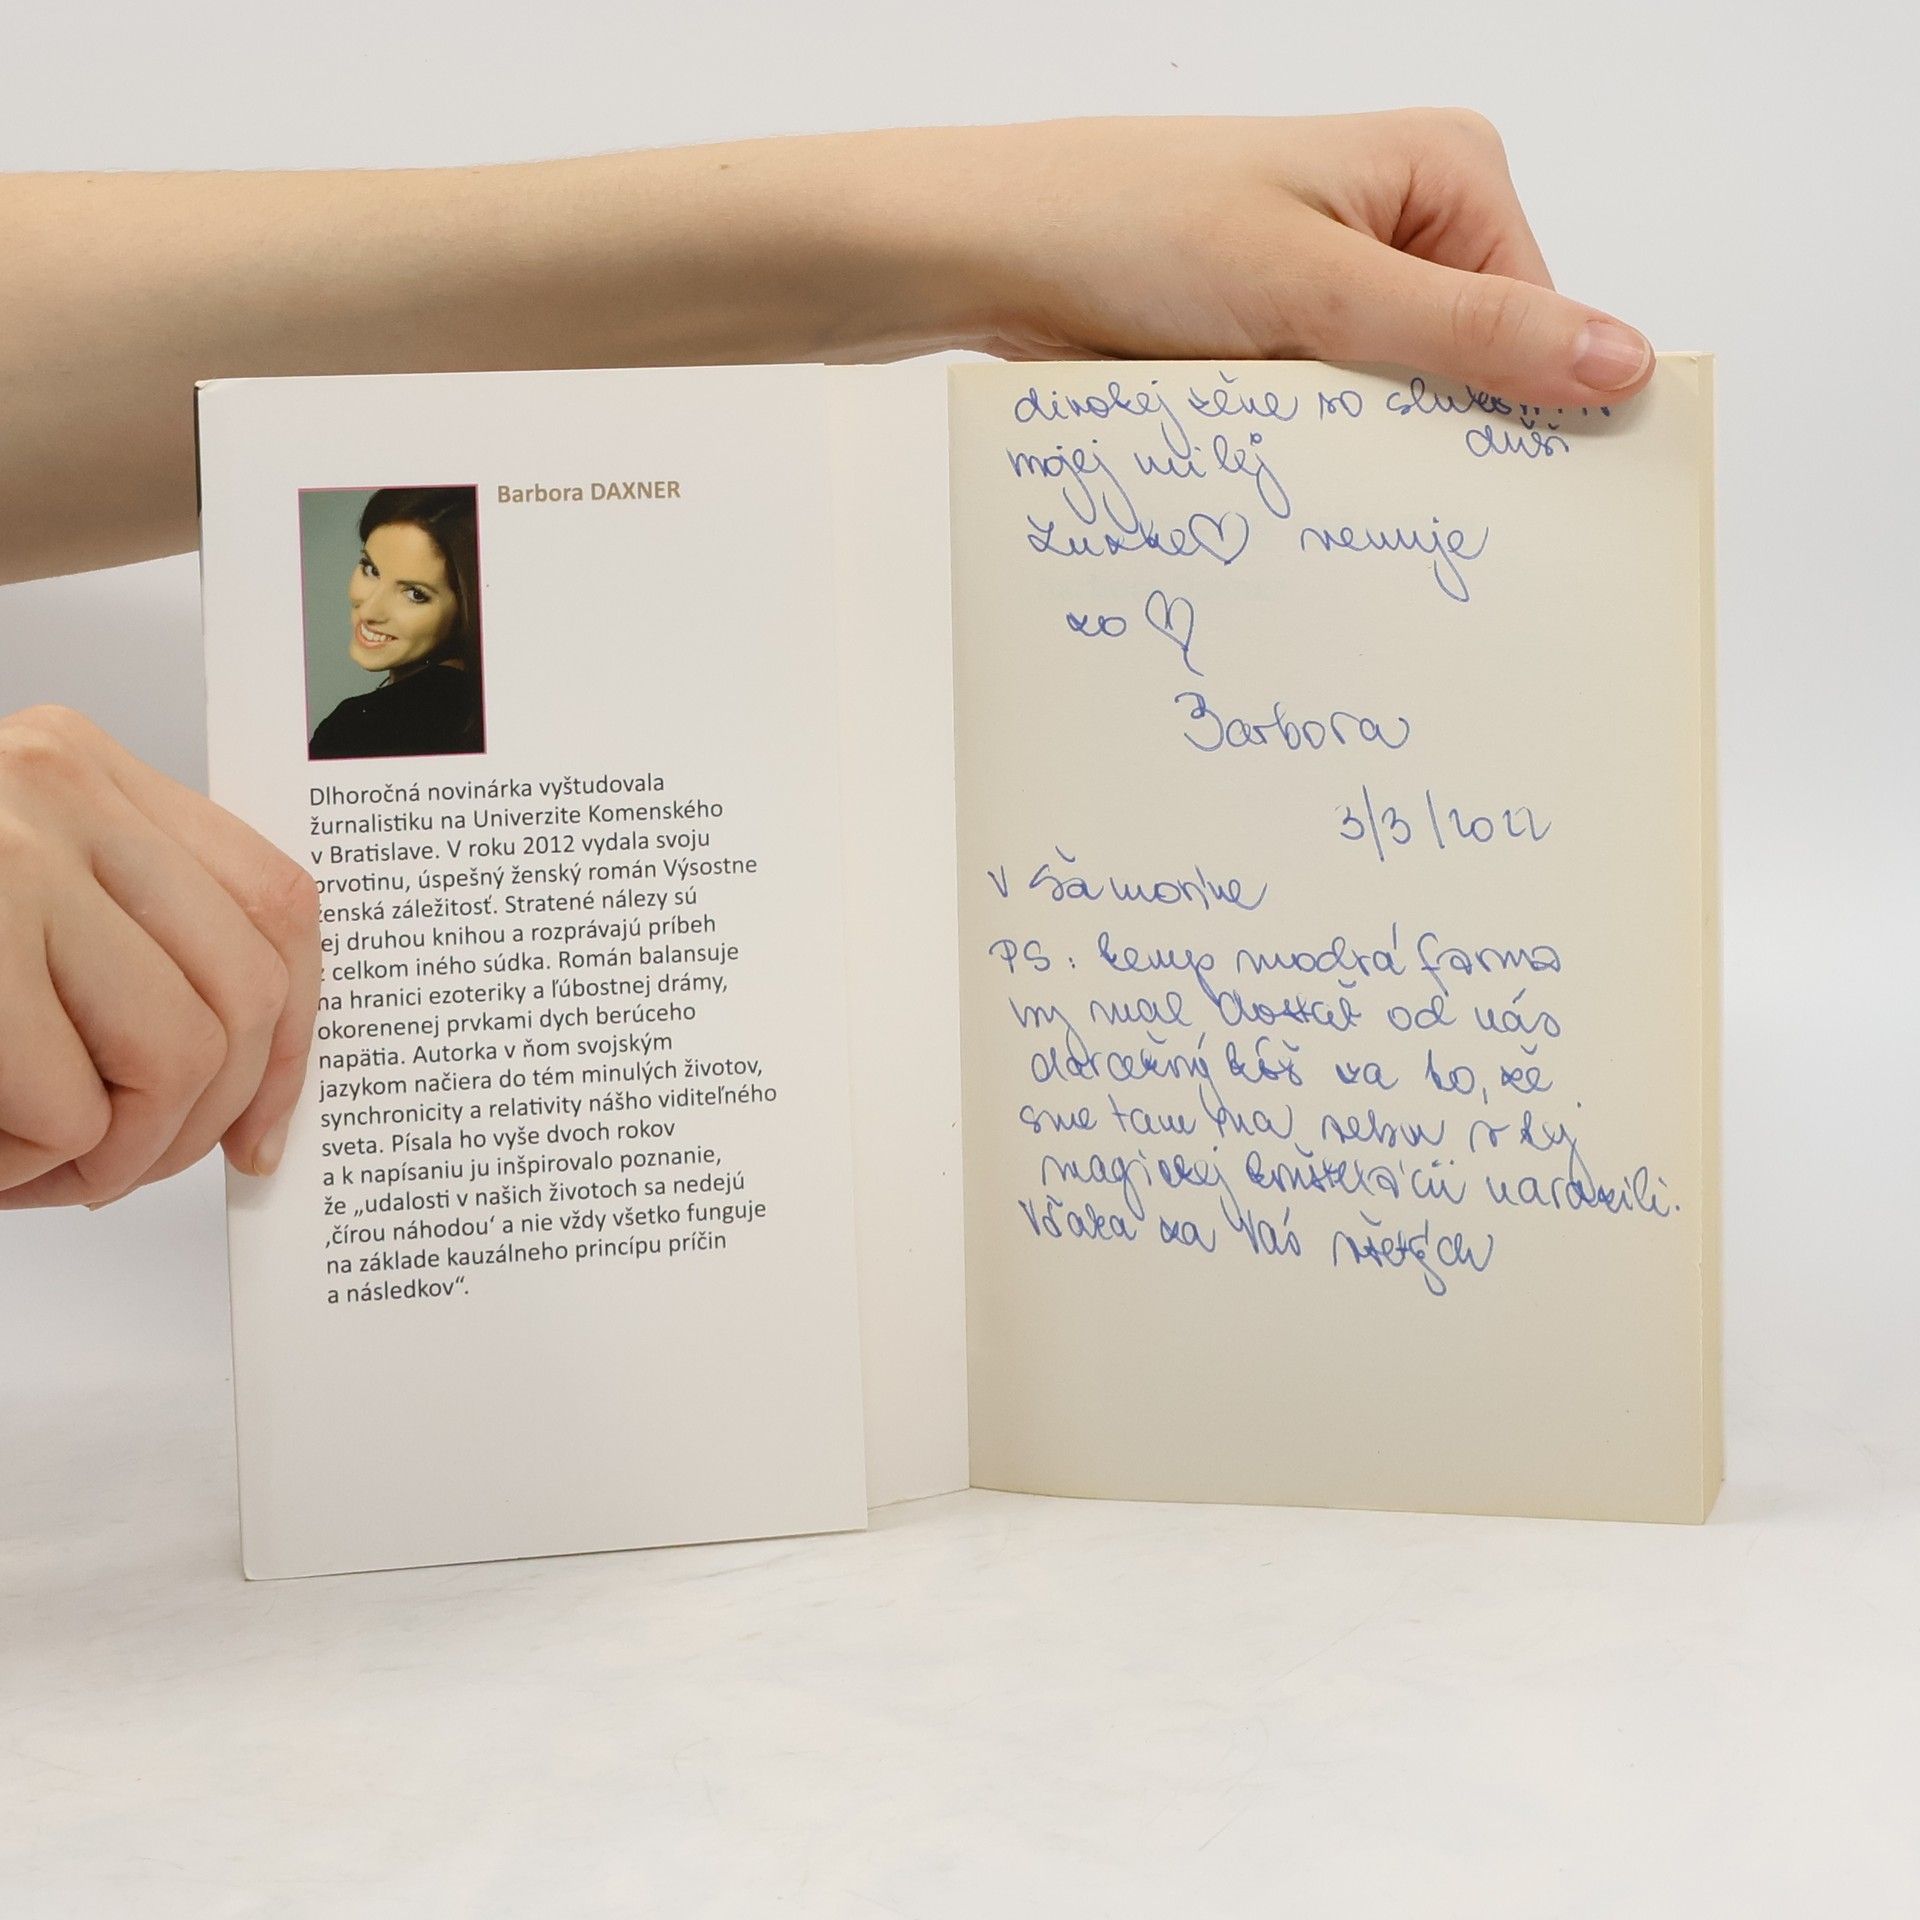 Barbora DAXNER
Dlhoročná novinárka vyštudovala
žurnalistiku na Univerzite Komenského
v Bratislave. V roku 2012 vydala svoju
prvotinu, úspešný ženský román Výsostne
ženská záležitosť. Stratené nálezy sú
jej druhou knihou a rozprávajú príbeh
z celkom iného súdka. Román balansuje
na hranici ezoteriky a ľúbostnej drámy,
okorenenej prvkami dych berúceho
napätia. Autorka v ňom svojským
jazykom načiera do tém minulých životov,
synchronicity a relativity nášho viditeľného
sveta. Písala ho vyše dvoch rokov
a k napísaniu ju inšpirovalo poznanie,
že „udalosti v našich životoch sa nedejú
‚čírou náhodou‘ a nie vždy všetko funguje
na základe kauzálneho princípu príčin
a následkov“.
divokej žene so
duši
mojej milej
Zuzke venuje
zo
Barbora
3/3/2022
V Šamoríne
PS: kemp modrá farma
by mal dostať od nás
darčekový kôš za to, že
sme tam na seba v tej
magickej konštelácii narazili.
Vďaka za Vás všetkých